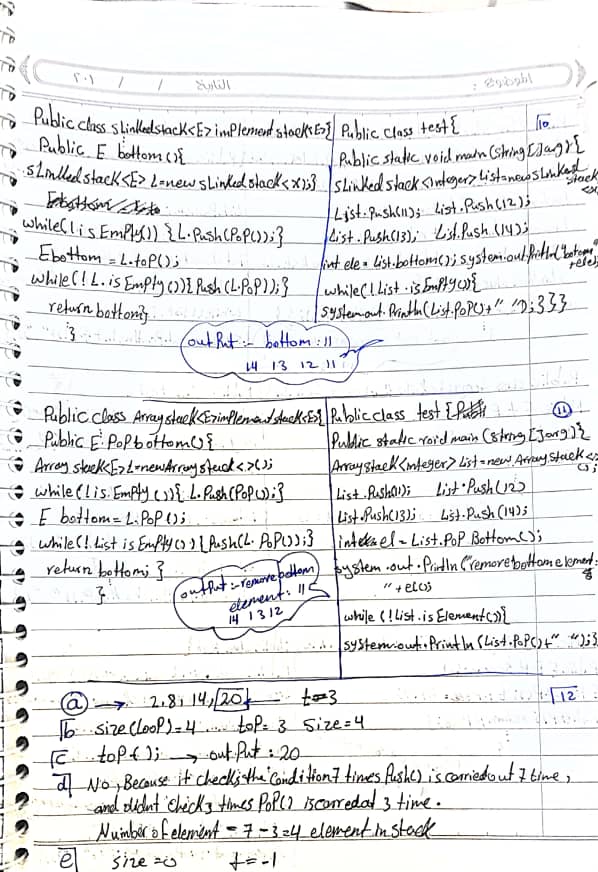 الموضوع :
التاريخ / / ٢٠١
Public class sLinkedstack<E> implement stack<E>{
Public E bottom(){
sLinkedstack<E> L=new sLinkedstack<x>;}
while(!isEmpty()) {L.Push(PoP());}
E bottom = L.top();
while(! L.isEmpty()){Push(L.PoP());}
return bottom;}
}
10
Public class test{
Public static void main (string[]arg){
sLinked stack<Integer> List=new sLinked stack <x>
List.Push(11); List.Push(12);
List.Push(13); List.Push(14);
int ele = List.bottom(); system.out.Println("bottom" +ele);
while(!List.isEmpty()){
system.out.Println(List.PoP()+" ");}}}
outPut :- bottom : 11
14 13 12 11
Public class Arraystack<E>implement stack<E>{
Public E PoPbottom(){
Array stack<E>L=newArraystack<>();
while(!is Empty()){ L.Push(PoP());}
E bottom = L.PoP();
while(!List isEmpty()){Push(L.PoP());}
return bottom; }
}
11
Public class test {
Public static void main (string[]arg){
Arraystack<integer>List=new Array stack<> ();
List.Push(11); List.Push(12)
List.Push(13); List.Push(14);
int el = List.PoP Bottom();
system.out.Println("remove bottom element:
"+el);
while (!List.isElement()){
system.out.Println(List.PoP()+" ");}}
outPut :- remove bottom
element : 11
14 13 12
12
a → 2,8,14,20 ← t=3
b size(LooP)=4 toP=3 Size=4
c toP(); → outPut : 20
d No, Because it checks the condition 7 times Push() is carried out 7 time,
and didnt check 3 times PoP() is corred at 3 time.
Number of element = 7-3=4 element in stack
e size=0 t=-1